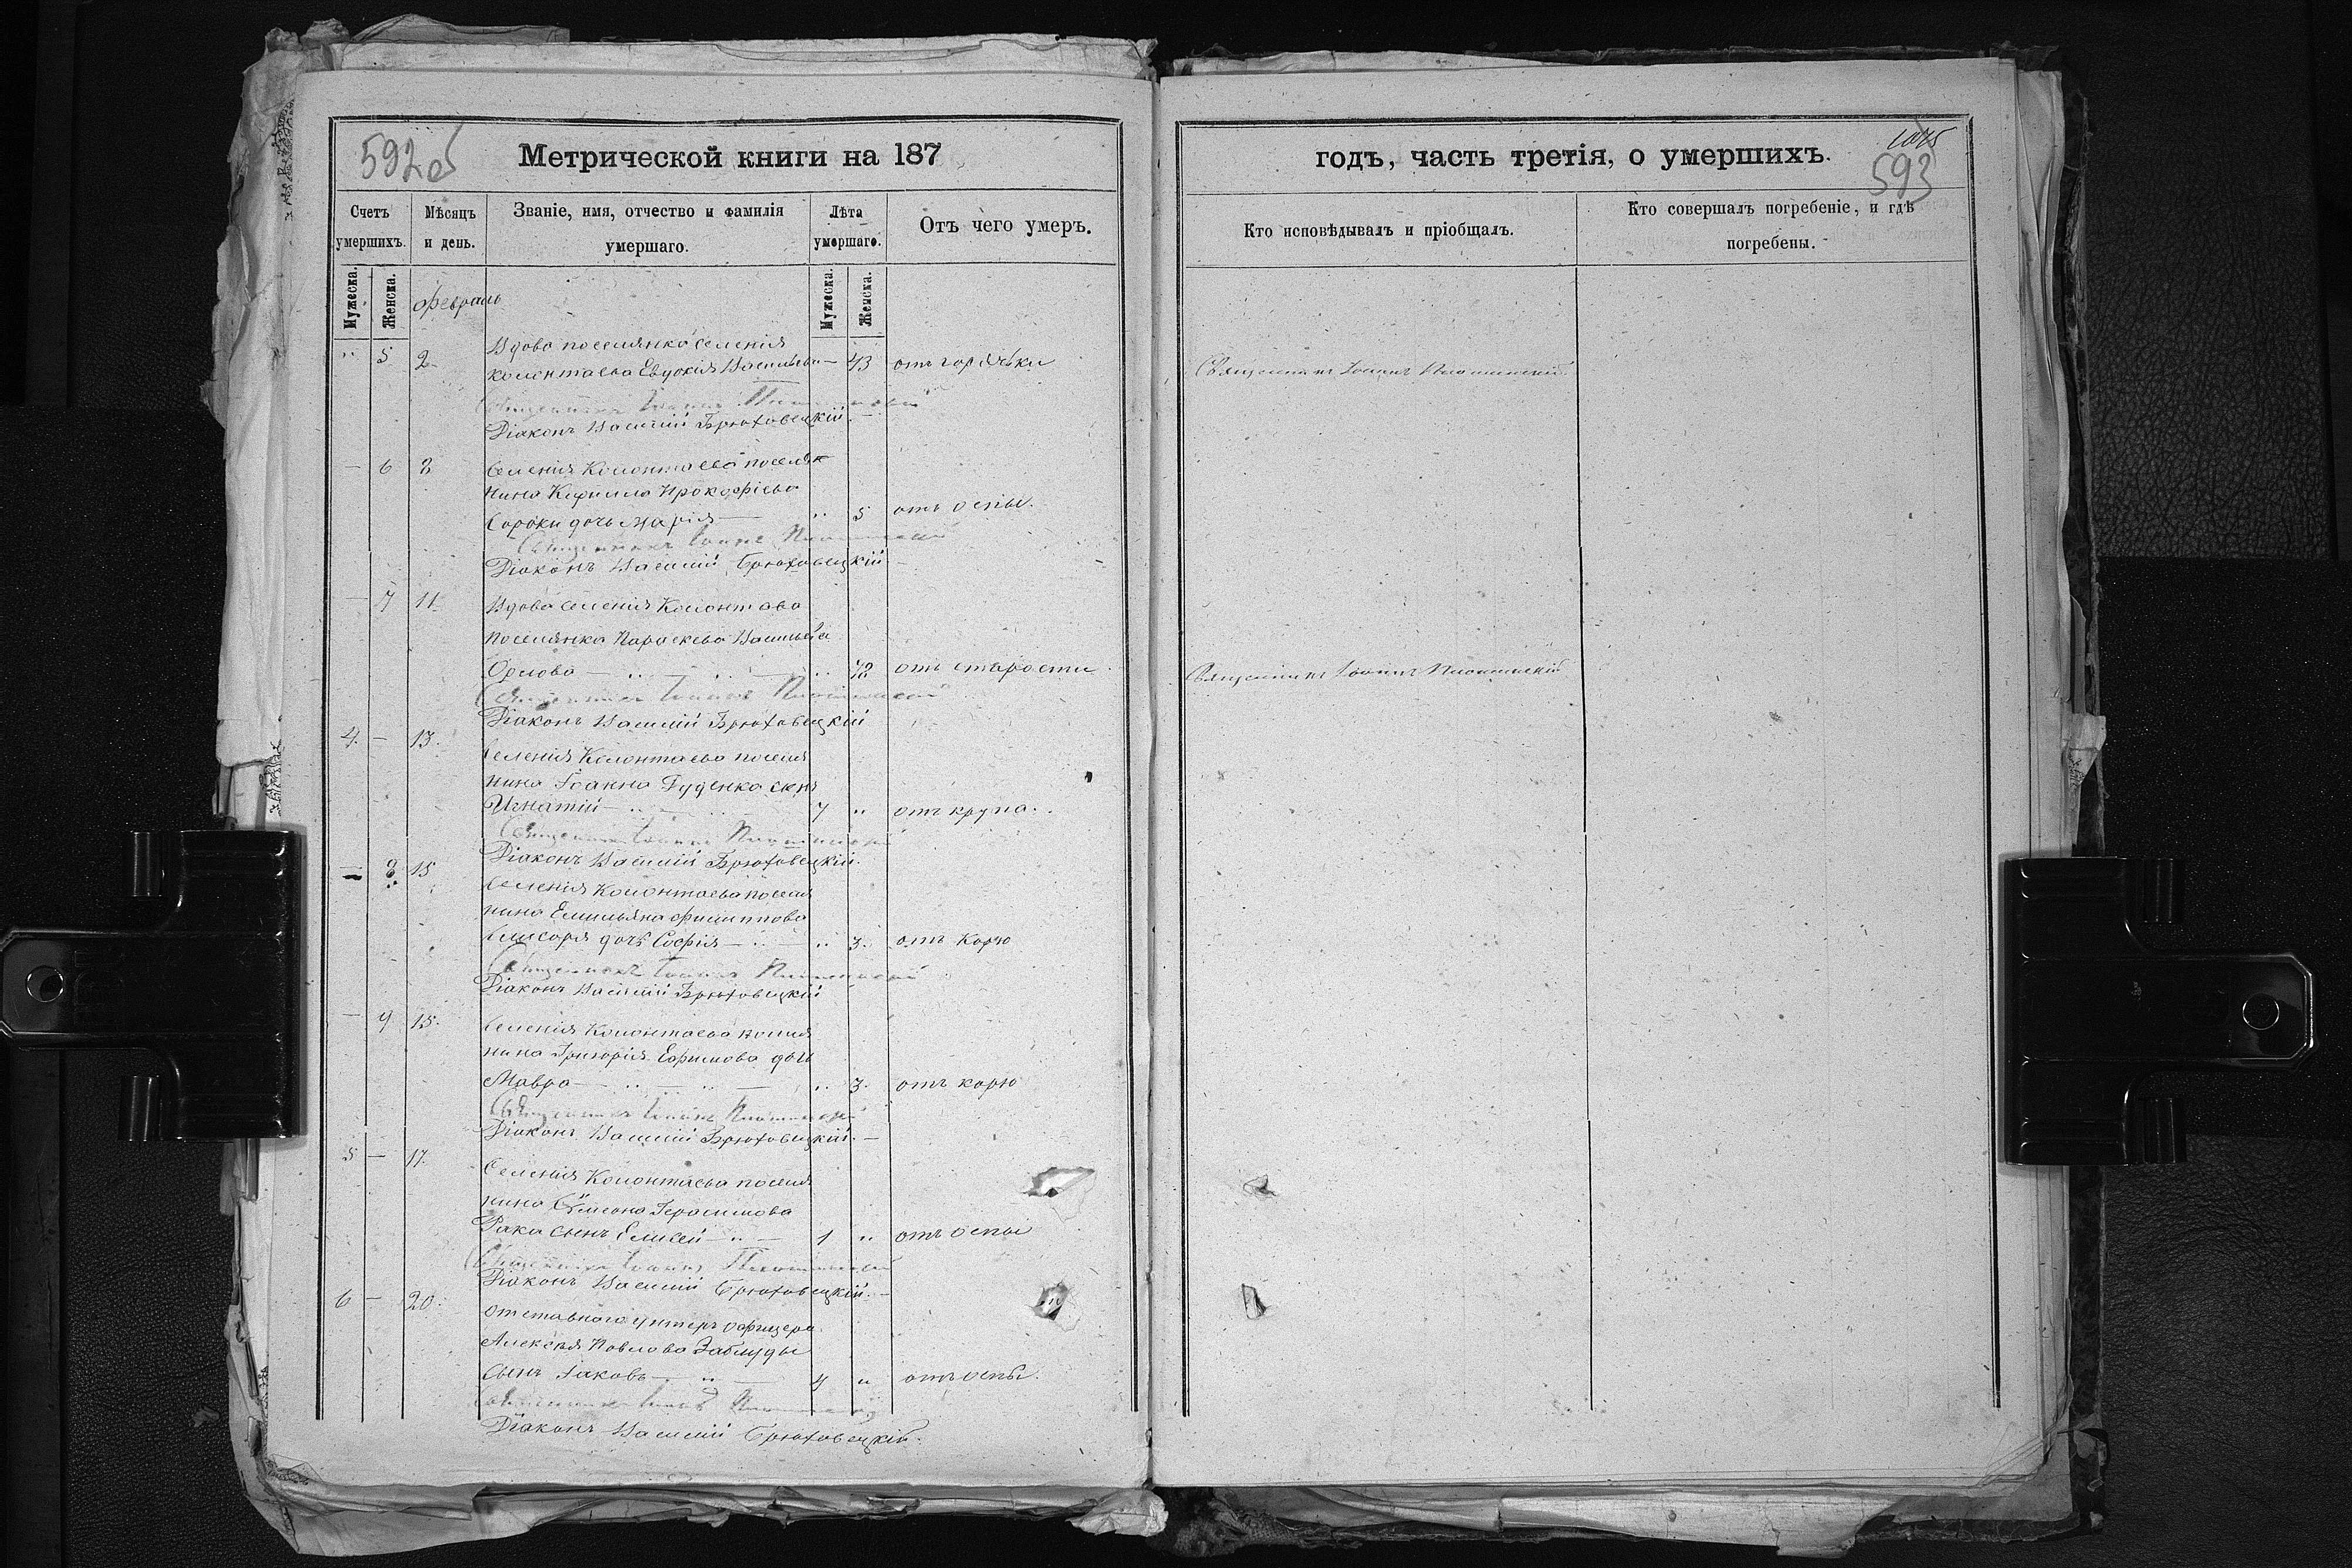 592 об
Метрической книги на 187
годъ, часть третія, о умершихъ.
1075
593
Счетъ умершихъ.
Мѣсяцъ и день.
Званіе, имя, отчество и фамилія умершаго.
Лѣта умершаго.
Отъ чего умеръ.
Кто исповѣдывалъ и пріобщалъ.
Кто совершалъ погребеніе, и гдѣ погребены.
Мужеска.
Женска.
Мужеска.
Женска.
Февраль
Вдова поселянка селенія
" 5 2 Колонтаева Евдокія Васильева — 43 отъ горячьки
Священникъ Іоаннъ
Священникъ Іоаннъ
Діаконъ Василій Брюховецкій. —
— 6 8 Селенія Колонтаева поселя
нина Кирилла Прокофіева
Сороки дочь Марія — " 5 отъ оспы.
Священникъ Іоаннъ
Діаконъ Василій Брюховецкій —
— 7 11. Вдова селенія Колонтава
поселянка Параскева Васильева
Орлова — " — " — " 78 отъ старости
Священникъ Іоаннъ
Священникъ Іоаннъ
Діаконъ Василій Брюховецкій
4. — 13.
Селенія Колонтаева поселя
нина Іоанна Руденка сынъ
Игнатій — " — " 7 " отъ крупа.
Священникъ Іоаннъ
Діаконъ Василій Брюховецкій.
— 8 15
Селенія Колонтаева поселя
нина Емильяна Филиппова
дочь Софія — " — " 3. отъ корю
Священникъ Іоаннъ
Діаконъ Василій Брюховецкій
— 9 15.
Селенія Колонтаева поселя
нина Григорія Ефимова дочь
Мавра — " — " — " 3. отъ корю
Священникъ Іоаннъ
Діаконъ Василій Брюховецкій. —
5 — 17.
Селенія Колонтаева поселя
нина Сѵмеона Герасимова
Рака сынъ Елисей — " — 1 " отъ оспы
Священникъ Іоаннъ
Діаконъ Василій Брюховецкій. —
6 — 20.
Отставного унтеръ офицера
Алексѣя Павлова Заблуды
Сынъ Іаковъ — " — 4 " отъ оспы.
Діаконъ Василій Брюховецкій.